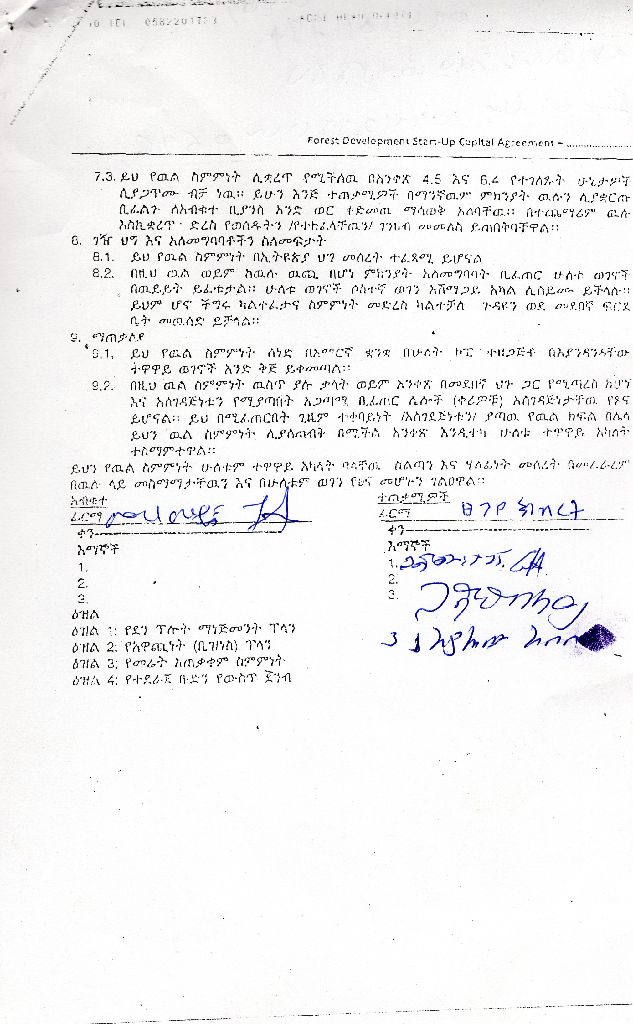 TEL 0582201723
Forest Development Start-Up Capital Agreement – ....................
7.3. ይህ የዉል ስምምነት ሊቋረጥ የሚችለዉ በአንቀጽ 4.5 እና 6.4 የተገለፁት ሁኔታዎች
ሲያጋጥሙ ብቻ ነዉ። ይሁን እንጅ ተጠቃሚዎች በማንኛዉም ምክንያት ዉሉን ሊያቋርጡ
ቢፈልጉ ለአብቁተ ቢያንስ አንድ ወር ቀድመዉ ማሳወቅ አለባቸዉ። በተጨማሪም ዉሉ
እስኪቋረጥ ድረስ የወሰዱትን /የተከፈላቸዉን/ ገንዘብ መመለስ ይጠበቅባቸዋል።
8. ገዥ ህግ እና አለመግባባቶችን ስለመፍታት
8.1. ይህ የዉል ስምምነት በኢትዮጵያ ህግ መሰረት ተፈጻሚ ይሆናል
8.2. በዚህ ዉል ወይም ከዉሉ ዉጪ በሆነ ምክንያት አለመግባባት ቢፈጠር ሁለቱ ወገኖች
በዉይይት ይፈቱታል። ሁለቱ ወገኖች ሶስተኛ ወገን አሸማጋይ አካል ሊሰይሙ ይችላሉ።
ይህም ሆኖ ችግሩ ካልተፈታና ስምምነት መድረስ ካልተቻለ ጉዳዩን ወደ መደበኛ ፍርድ
ቤት መዉሰድ ይቻላል።
9. ማጠቃለያ
9.1. ይህ የዉል ስምምነት ሰነድ በአማርኛ ቋንቋ በሁለት ኮፒ ተዘጋጅቶ በእያንዳንዳቸው
ተዋዋይ ወገኖች አንድ ቅጅ ይቀመጣል።
9.2. በዚህ ዉል ስምምነት ዉስጥ ያሉ ቃላት ወይም አንቀጽ በመደበኛ ህጉ ጋር የሚጣረስ ከሆነ
እና አስገዳጅነቱን የሚያጣበት አጋጣሚ ቢፈጠር ሌሎች (ቀሪዎቹ) አስገዳጅነታቸዉ የፀና
ይሆናል። ይህ በሚፈጠርበት ጊዜም ተቀባይነት /አስገዳጅነቱን/ ያጣዉ የዉል ክፍል በሌላ
ይህን ዉል ስምምነት ሊያስጠብቅ በሚችል አንቀጽ እንዲተካ ሁለቱ ተዋዋይ አካላት
ተስማምተዋል።
ይህን የዉል ስምምነት ሁለቱም ተዋዋይ አካላት ባላቸዉ ስልጣን እና ሃላፊነት መሰረት በመፈራረም
በዉሉ ላይ መስማማታቸዉን እና በሁለቱም ወገን የፀና መሆኑን ገልፀዋል።
አብቁተ
ፊርማ
ቀን
እማኞች
1.
2.
3.
ተጠቃሚዎች
ፊርማ
ቀን
እማኞች
1.
2.
3.
ዕዝል
ዕዝል 1: የደን ፕሎት ማነጅመንት ፕላን
ዕዝል 2: የአዋጪነት (ቢዝነስ) ፕላን
ዕዝል 3: የመሬት አጠቃቀም ስምምነት
ዕዝል 4: የተደራጀ ቡድን የውስጥ ደንብ